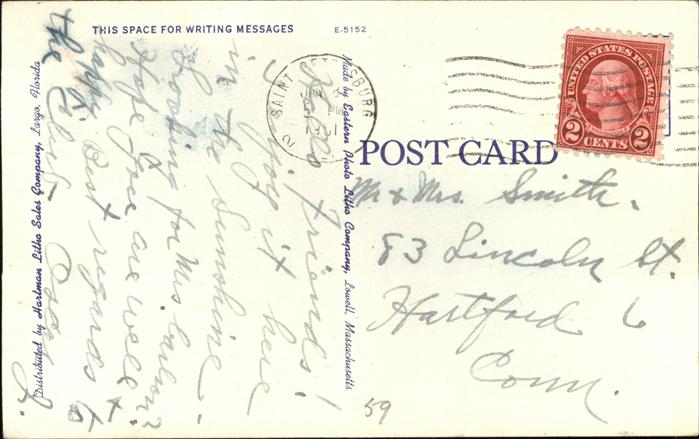 THIS SPACE FOR WRITING MESSAGES
E-5152
Distributed by Hartman Litho Sales Company, Largo, Florida
Hello Friends!
Enjoy it here
in the Sunshine.
Looking for Mrs.
Hope you are well &
happy. Best regards to
the Club.
Made by Eastern Photo Litho Company, Lowell, Massachusetts
SAINT PETERSBURG
JAN
2
UNITED STATES POSTAGE
2 CENTS 2
POST CARD
Mr & Mrs. Smith.
83 Lincoln St.
Hartford 6
Conn.
59